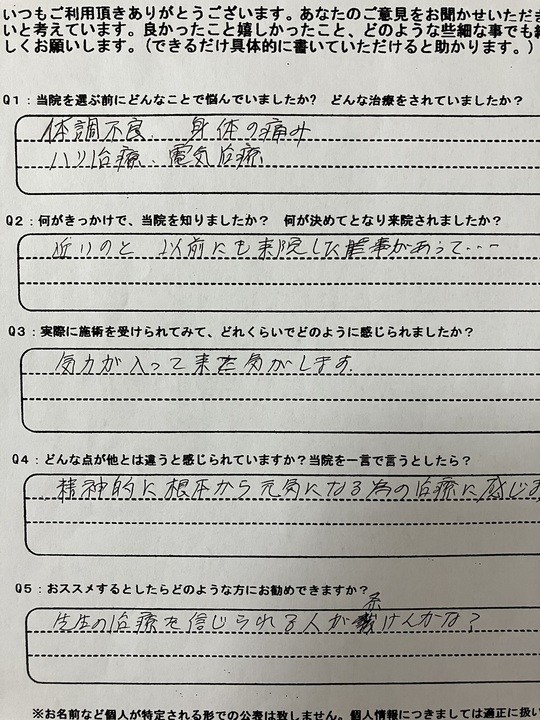 いつもご利用頂きありがとうございます。あなたのご意見をお聞かせいただき
いと考えています。良かったこと嬉しかったこと、どのような些細な事でも
しくお願いします。（できるだけ具体的に書いていただけると助かります。）
Q1：当院を選ぶ前にどんなことで悩んでいましたか？ どんな治療をされていましたか？
体調不良、身体の痛み
ハリ治療、電気治療
Q2：何がきっかけで、当院を知りましたか？ 何が決めてとなり来院されましたか？
近いのと 以前にも来院した事があって・・・
Q3：実際に施術を受けられてみて、どれくらいでどのように感じられましたか？
気力が入って来た気がします。
Q4：どんな点が他とは違うと感じられていますか？当院を一言で言うとしたら？
精神的に根本から元気になる為の治療に感じま
Q5：おススメするとしたらどのような方にお勧めできますか？
先生の治療を信じられる人が けんかな？
※お名前など個人が特定される形での公表は致しません。個人情報につきましては適正に扱い